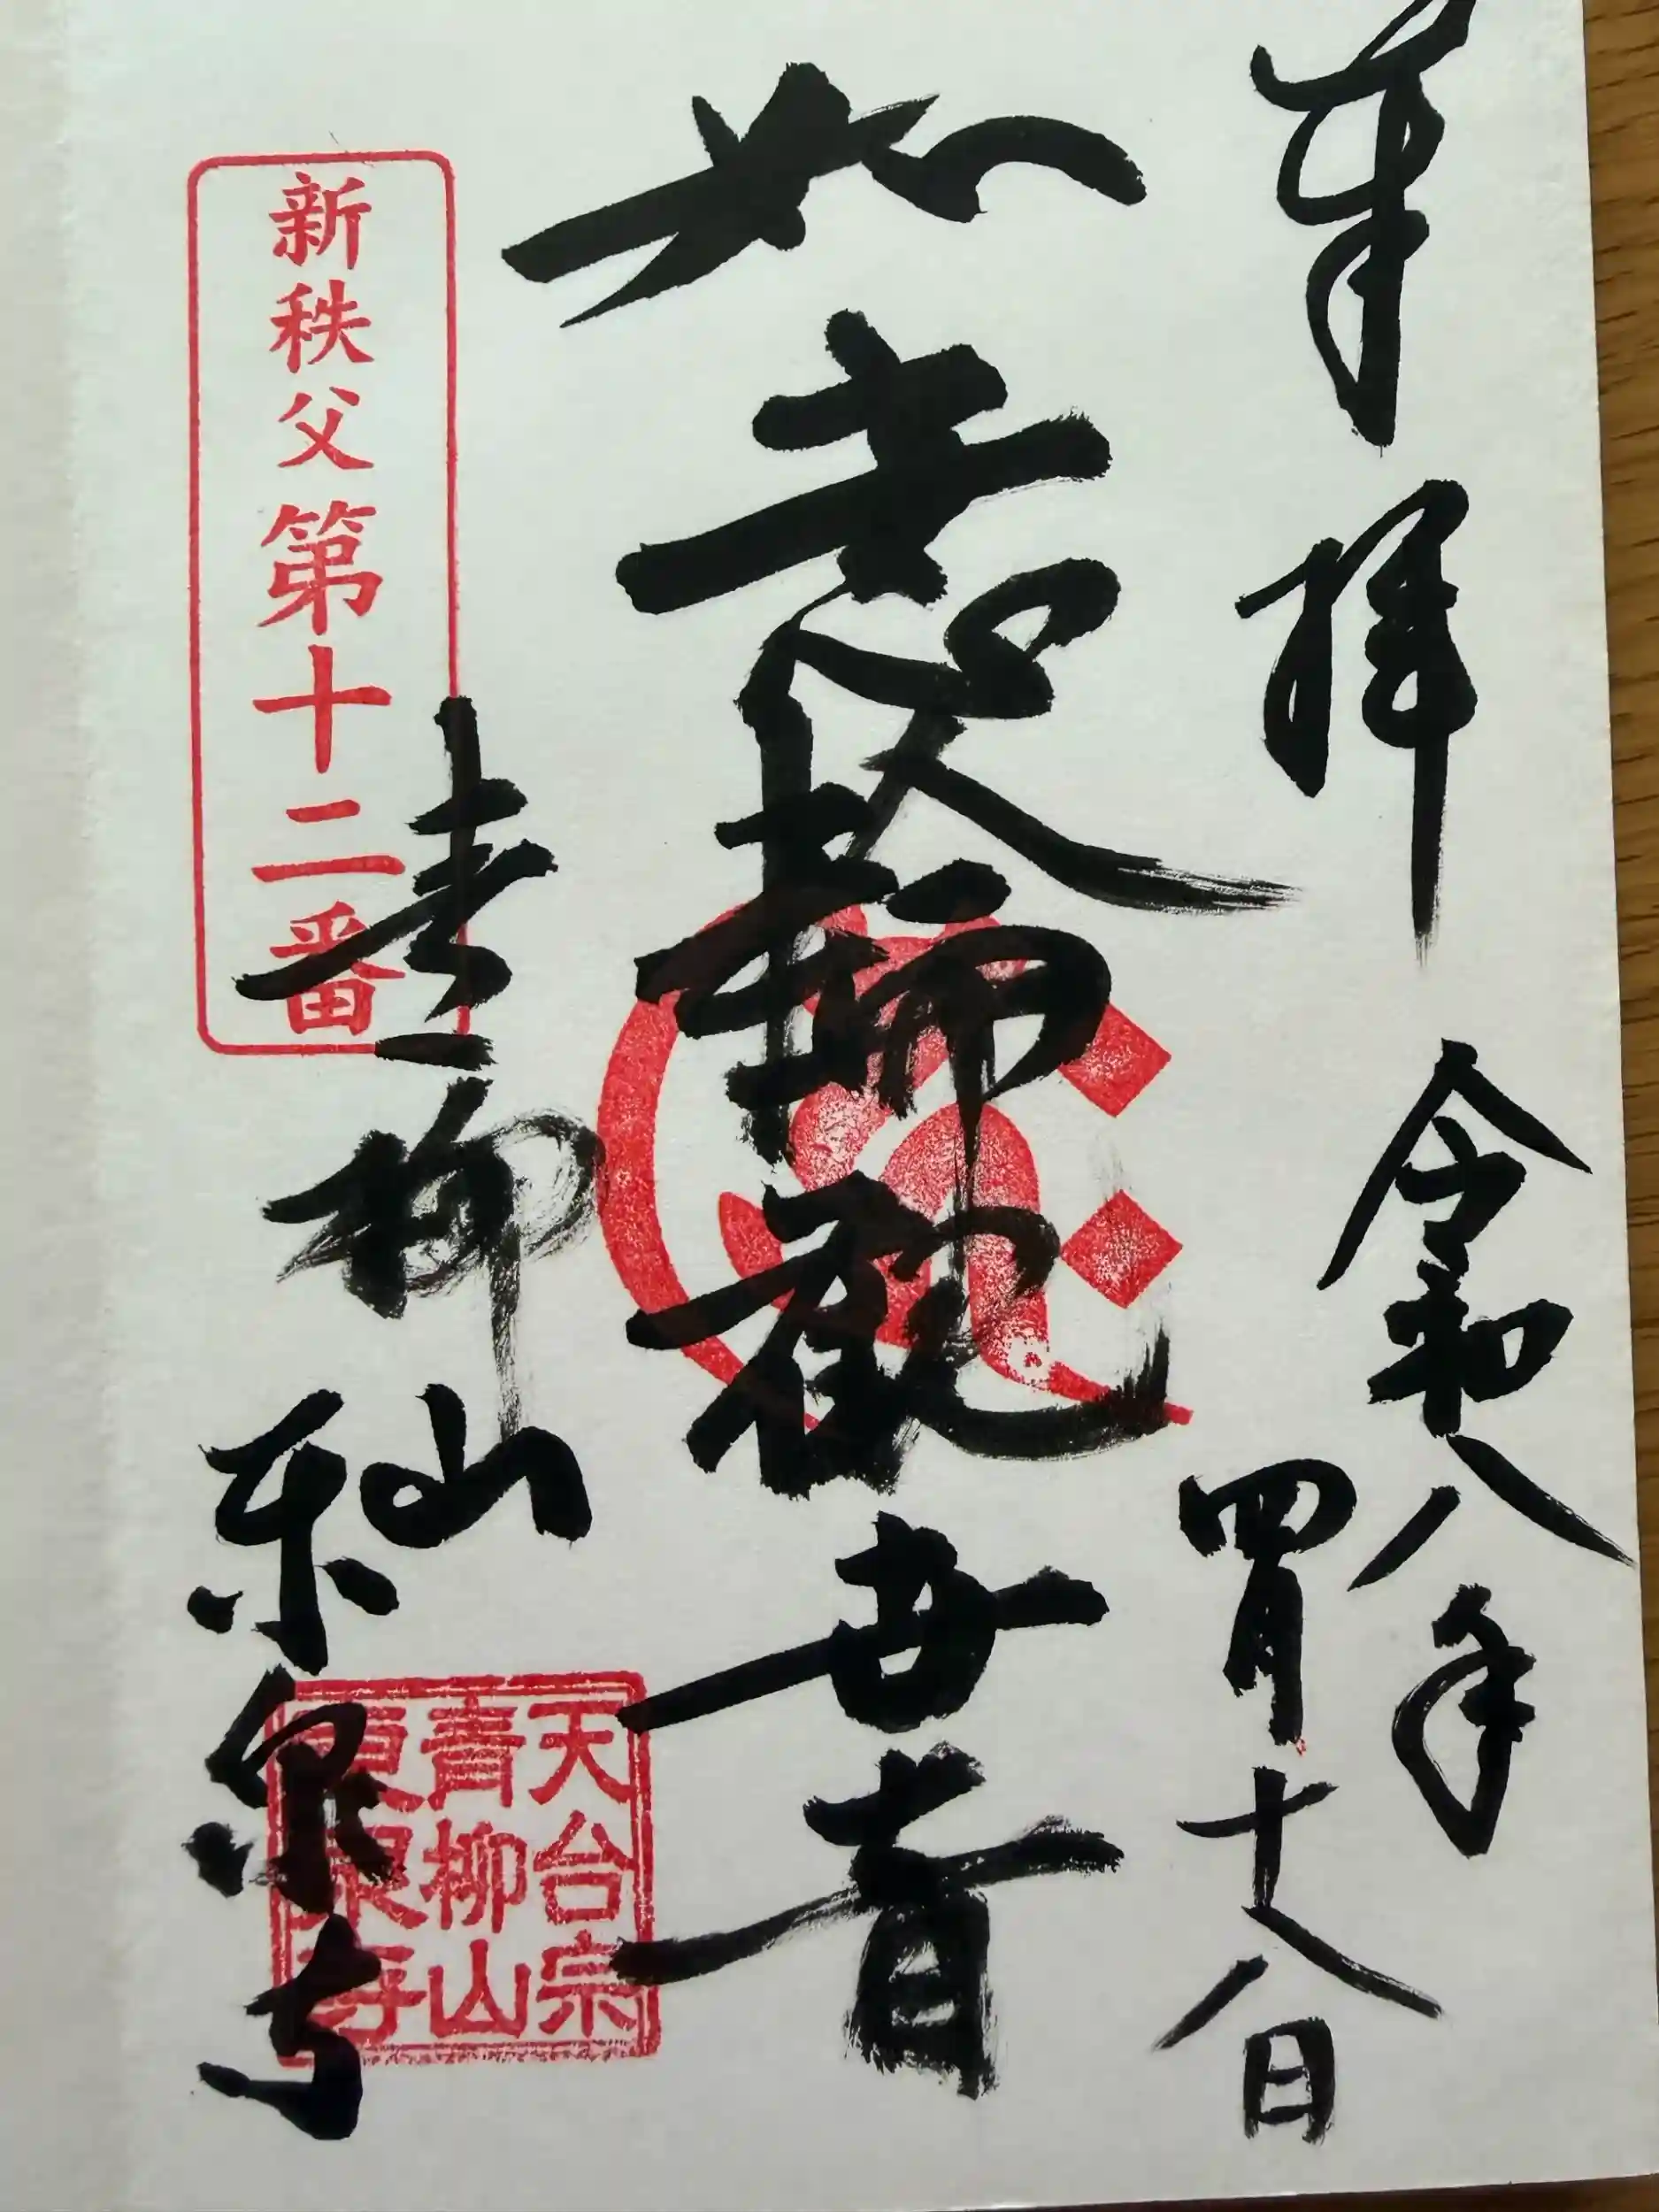 奉拝
令和八年
四月十八日
如意輪観世音
青柳山
東泉寺
新秩父第十二番
天台宗
青柳山
東泉寺